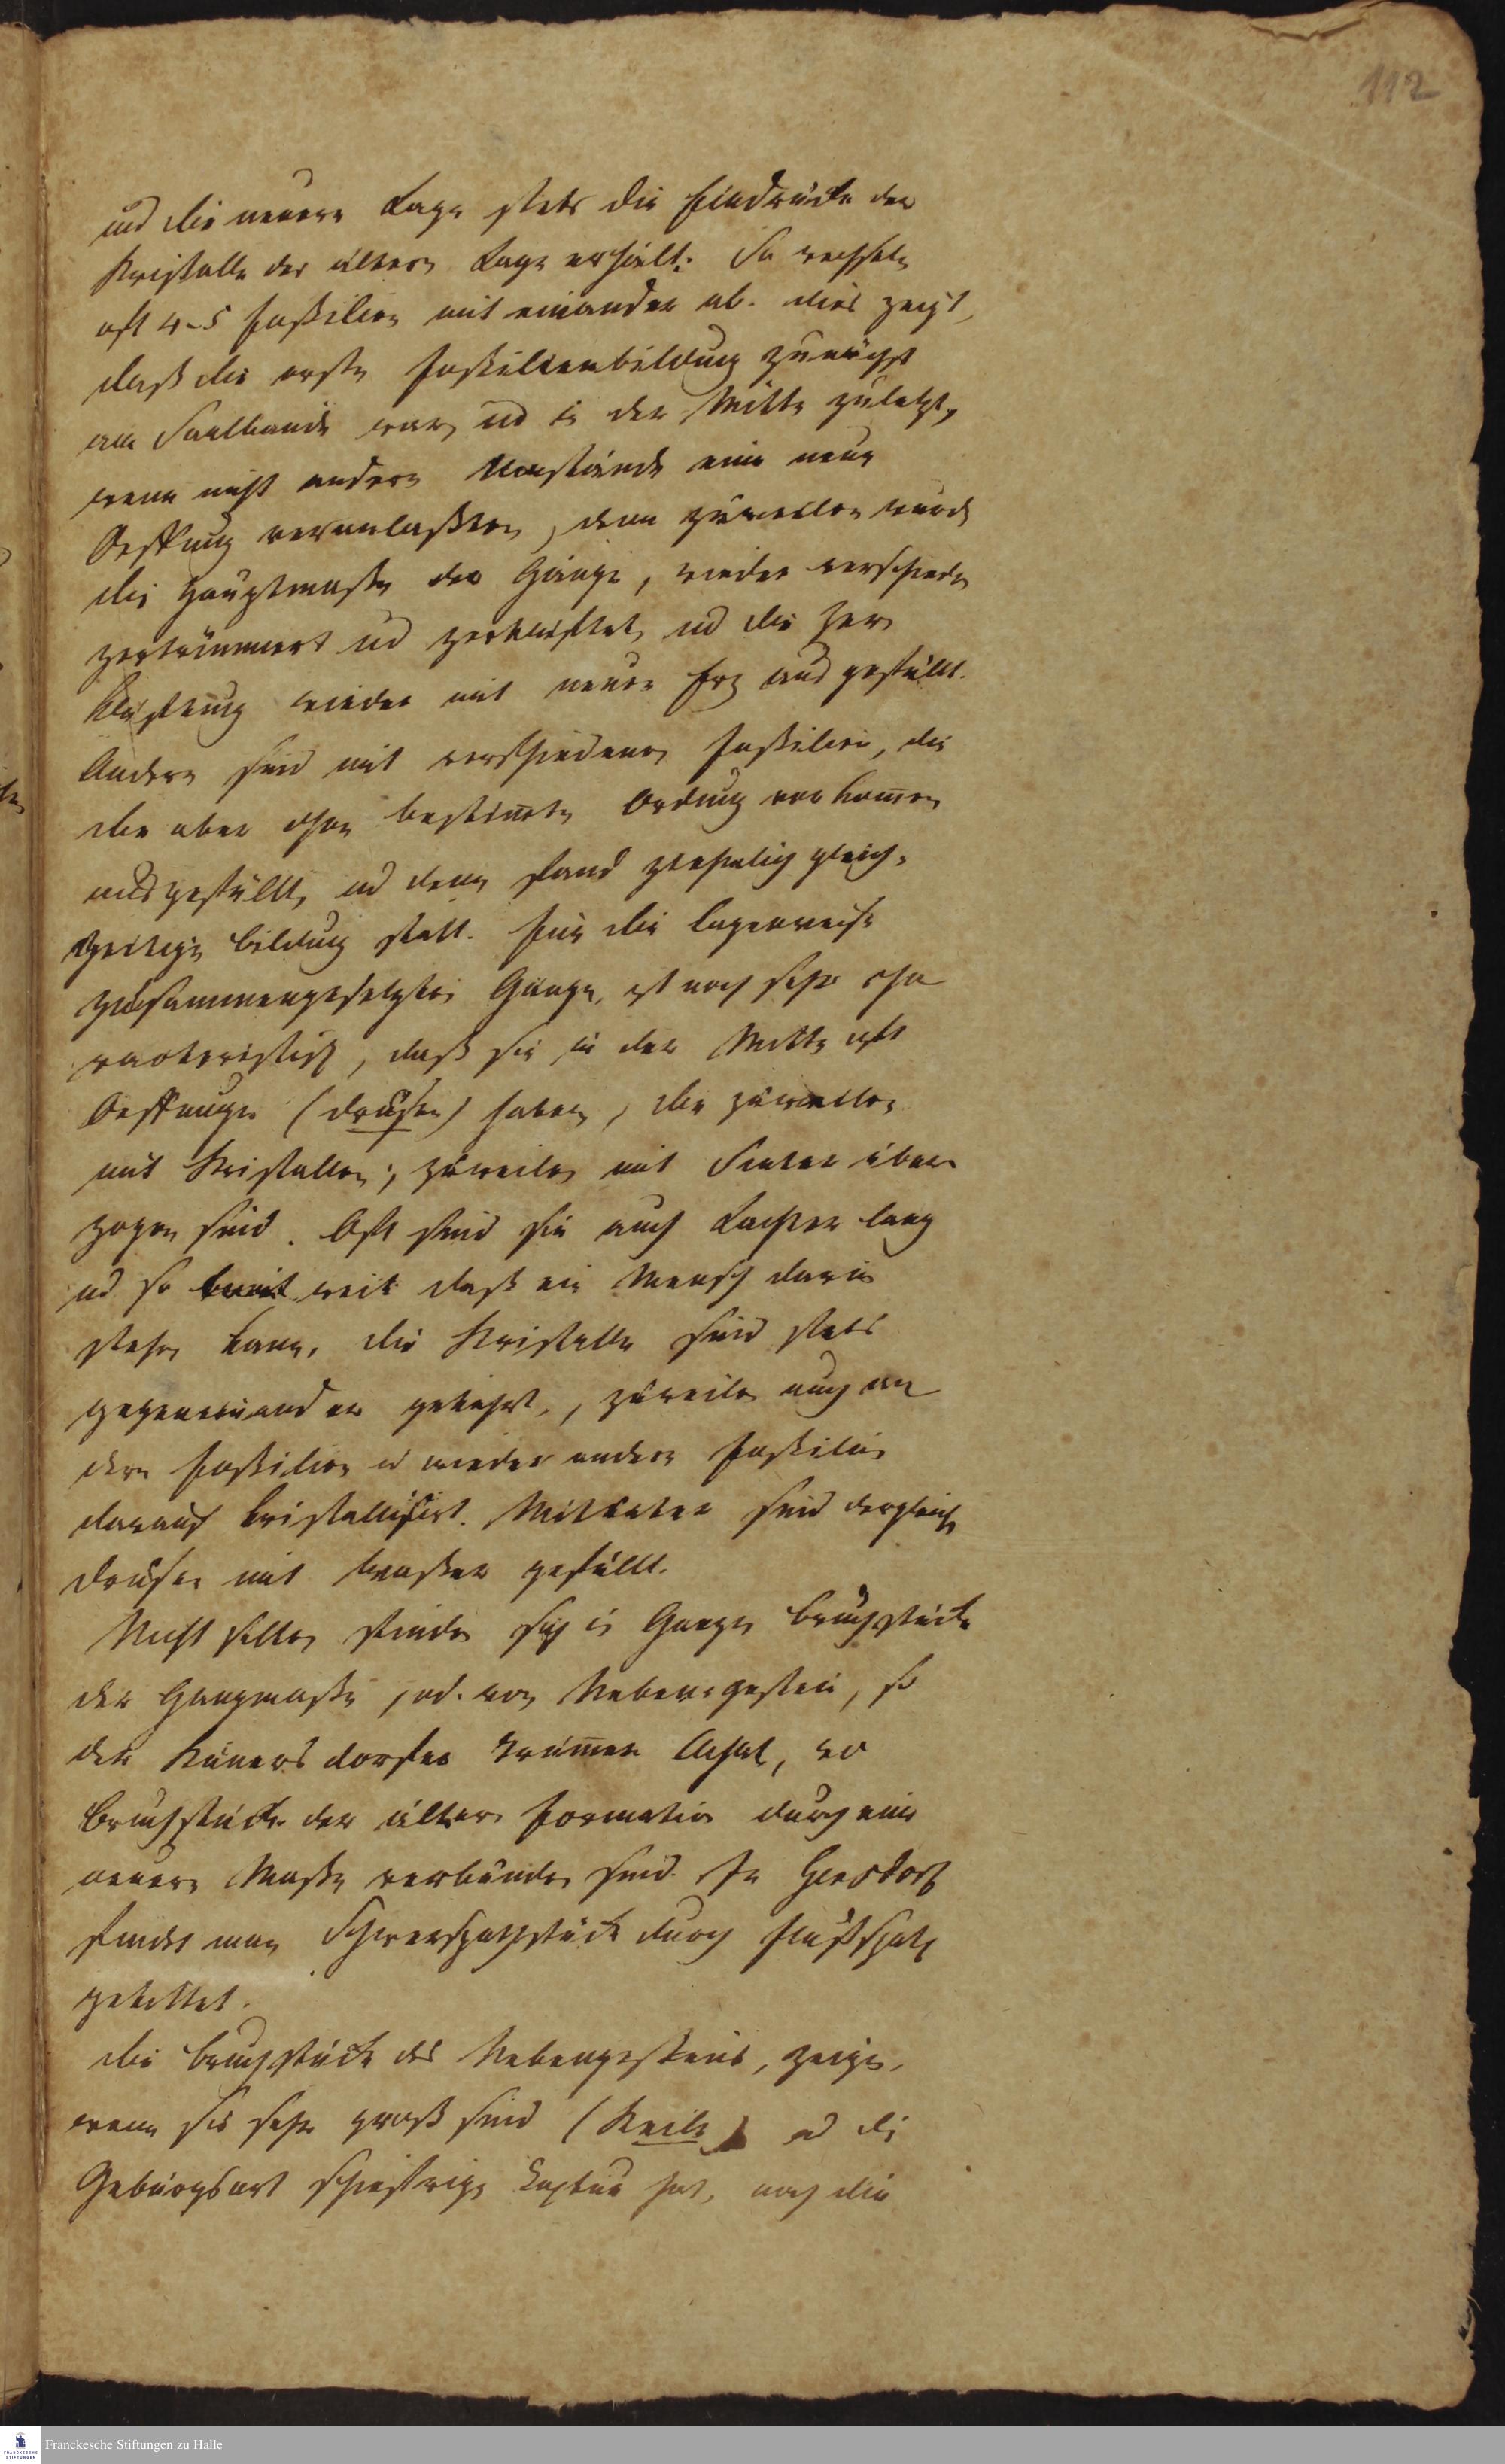 112
und die neuere Lage stets die Eindrücke der
Kristalle der ältern Lage erhielt. So wechseln
oft 4-5 Foßilien mit einander ab. dies zeigt,
daß die erste Foßilienbildung zunächst
am Saalbande war, und in der Mitte zuletzt,
wenn nicht andere Umstände eine neue
Oeffnung veranlaßten, denn zuweilen wurde
die Hauptmaße der Gänge, wieder verschieden
zertrümmert und zerklüftet, und die Zer
klüftung wieder mit neuen Erz ausgefüllt.
Andere sind mit verschiedenen Foßilien, die
die aber ohne bestim̄te Ordnung vorkom̄en
ausgefüllt, und denn fand ziemlich gleich-
zeitige Bildung statt. Für die lagenweise
zusammengesetzten Gänge, ist noch sehr cha
racteristisch, daß sie in der Mitte oft
Oeffnungen (Drusen) haben, die zuweilen
mit Kristallen, zuweilen mit Sinter über
zogen sind. Oft sind sie auch Lachter lang
und so weit daß ein Mensch darin
stehen kann, die Kristalle sind stets
gegeneinander gekehrt, zuweilen auch an
dere Foßilien und wieder andere Foßilien
darauf kristallisirt. Mitunter sind dergleich
Drusen mit Waßer gefüllt.
Nicht selten finden sich in Gängen Bruchstücke
der Gangmaße, od. von Nebengestein, so
der Kunersdorfer Trüm̄er Achat, wo
Bruchstücke der ältern Formation durch eine
neuere Maße verbunden sind. In Gersdorf
findet man Schwerspathstücke durch Flußspath
gekittet.
die Bruchstücke des Nebengesteins, zeigen,
wenn sie sehr groß sind (Keile) und die
Gebürgsart schiefrige Textur hat, noch die
Franckesche Stiftungen zu Halle